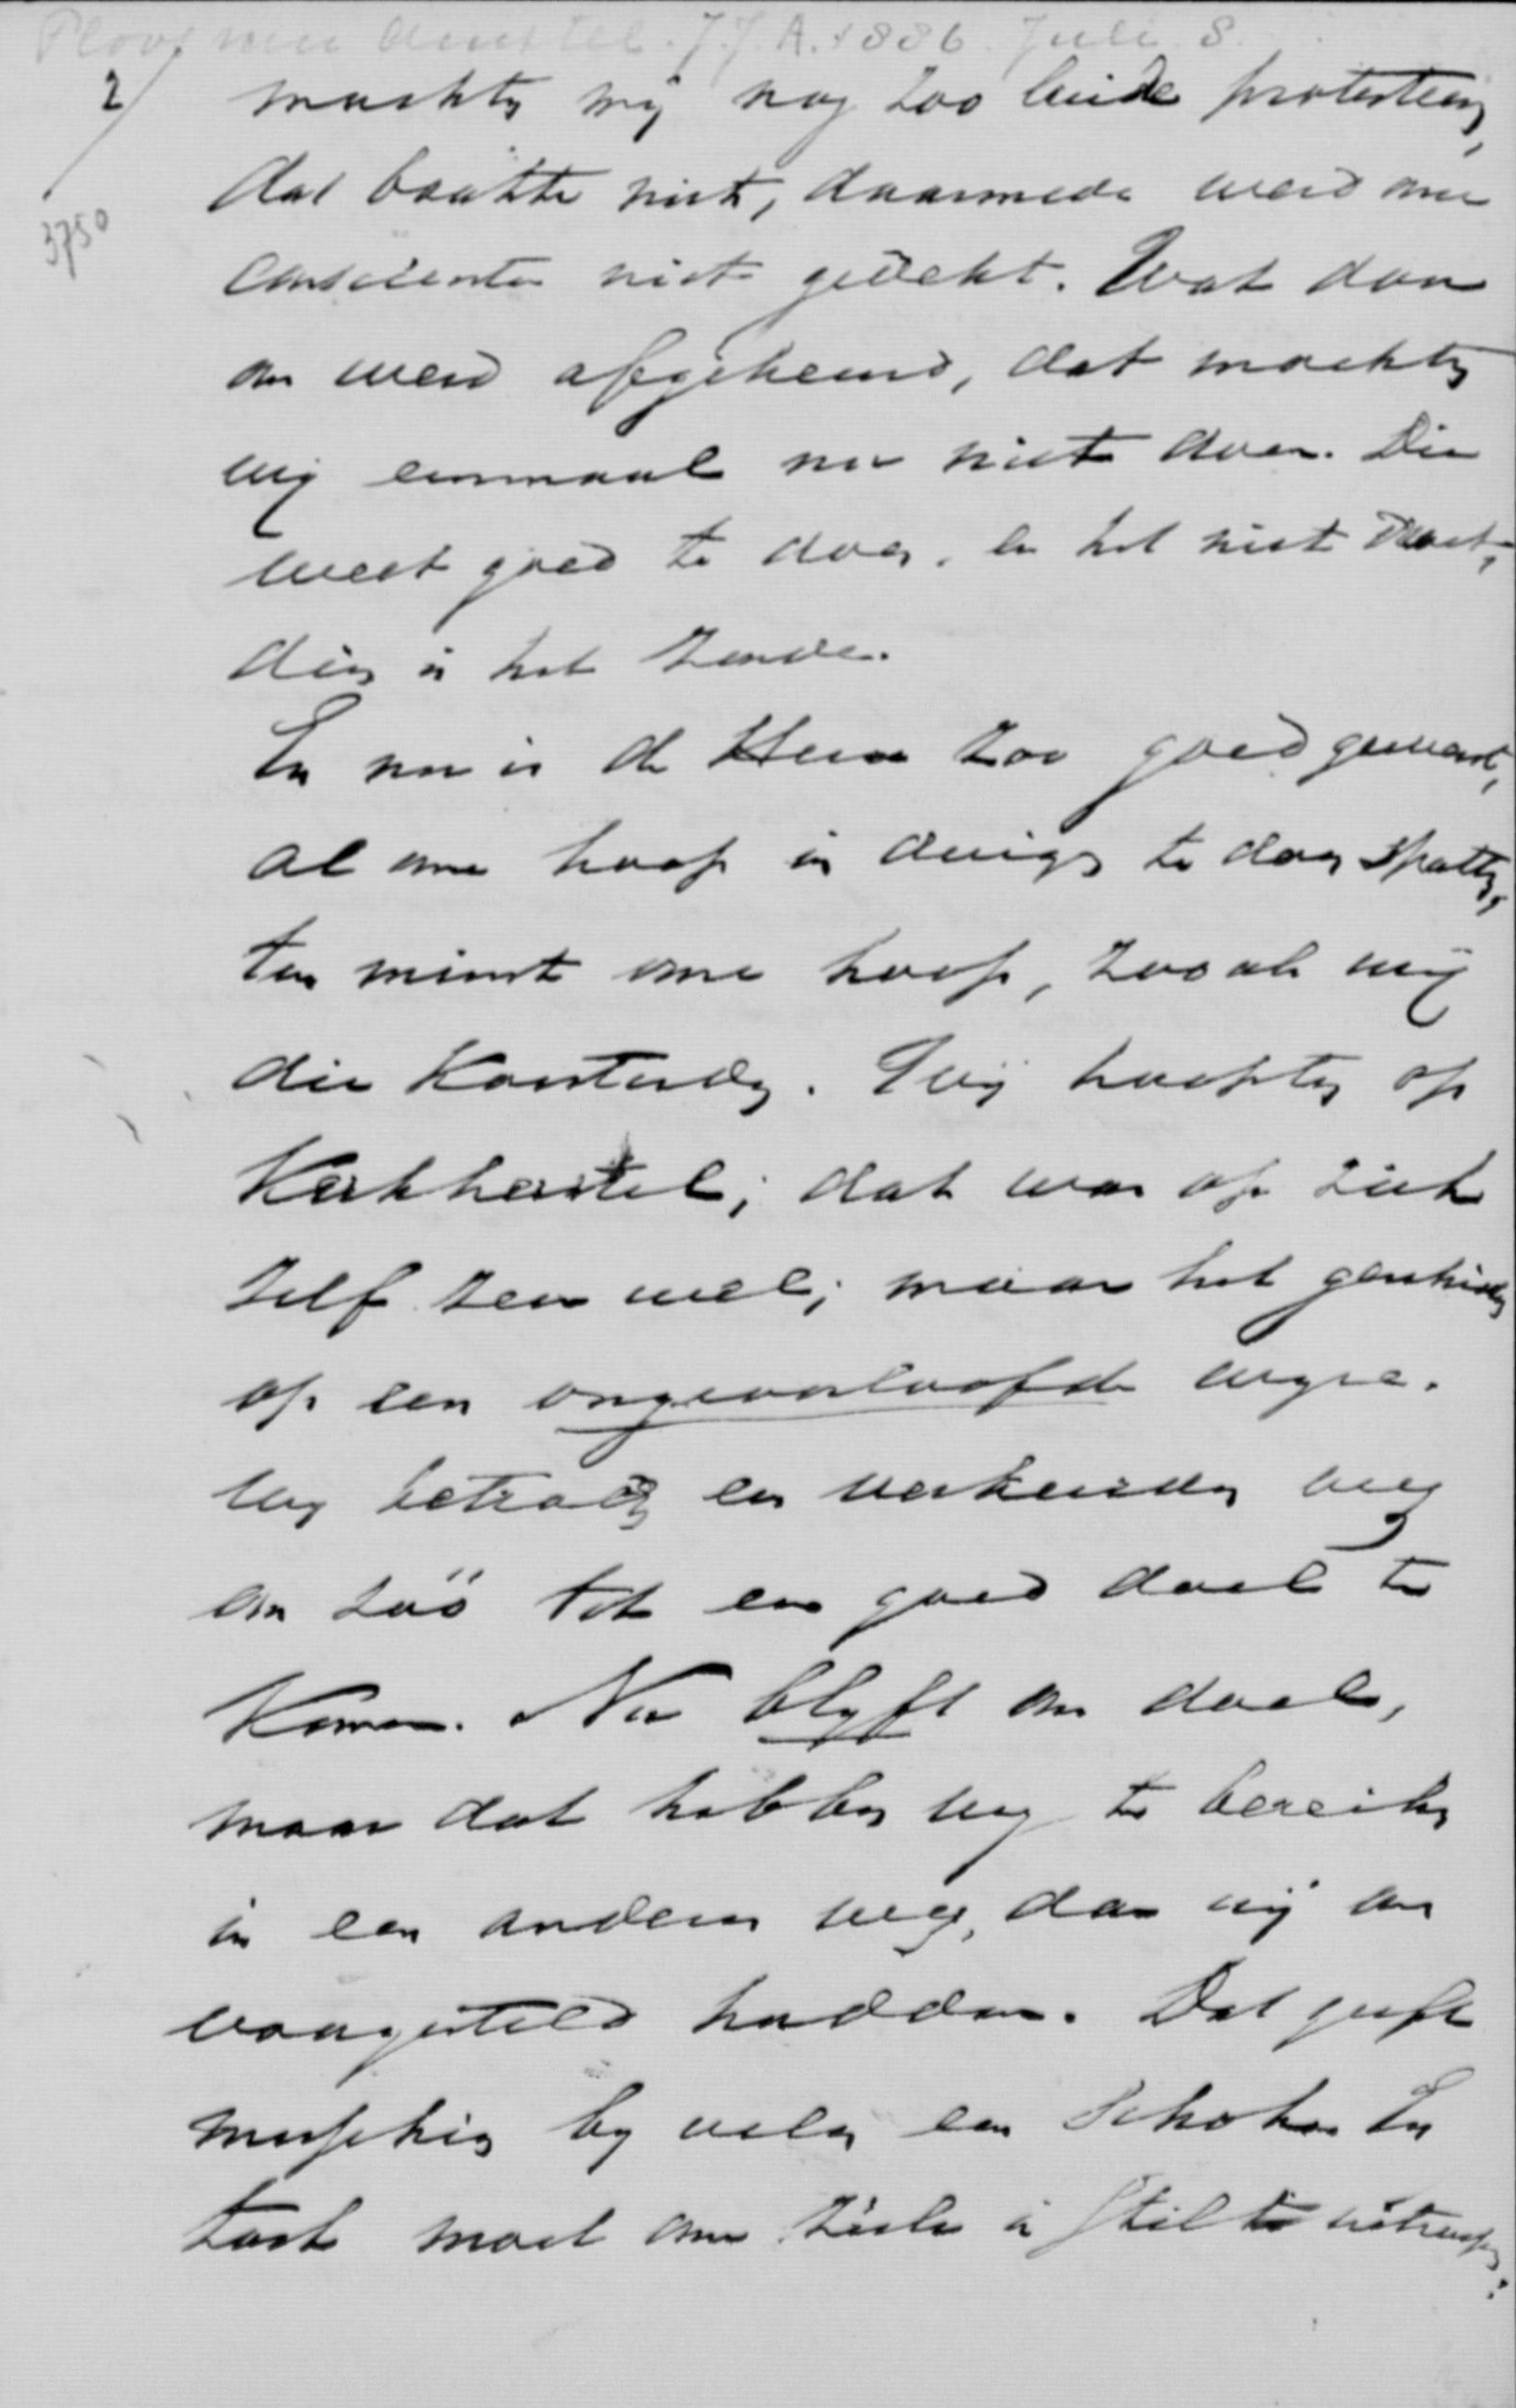 Ploos van Amstel. J.J.A. 1886. Juli 8.
2/ mochten wij nog zoo luide protesteeren,
3750
dat baatte niet, daarmede werd onze
conscientie niet gedekt. Wat door
ons werd afgekeurd, dat mochten
wij eenmaal nu niet doen. Die
weet goed te doen, en het niet doet,
dien is het zonde.
En nu is de Heere zoo goed geweest,
al onze hoop in duigen te doen spatten,
ten minste onze hoop, zooals wij
die koesterden. Wij hoopten op
Kerkherstel; dat was op zich
zelf zeer wel; maar het geschiedde
op een ongeoorloofde wijze.
Wij betraden een verkeerden weg
om zóó tot een goed doel te
komen. Nu blyft ons doel,
maar dat hebben wij te bereiken
in een anderen weg, dan wij ons
voorgesteld hadden. Dat geeft
misschien by velen een schok. En
toch moet onze ziele in stilte uitroepen: